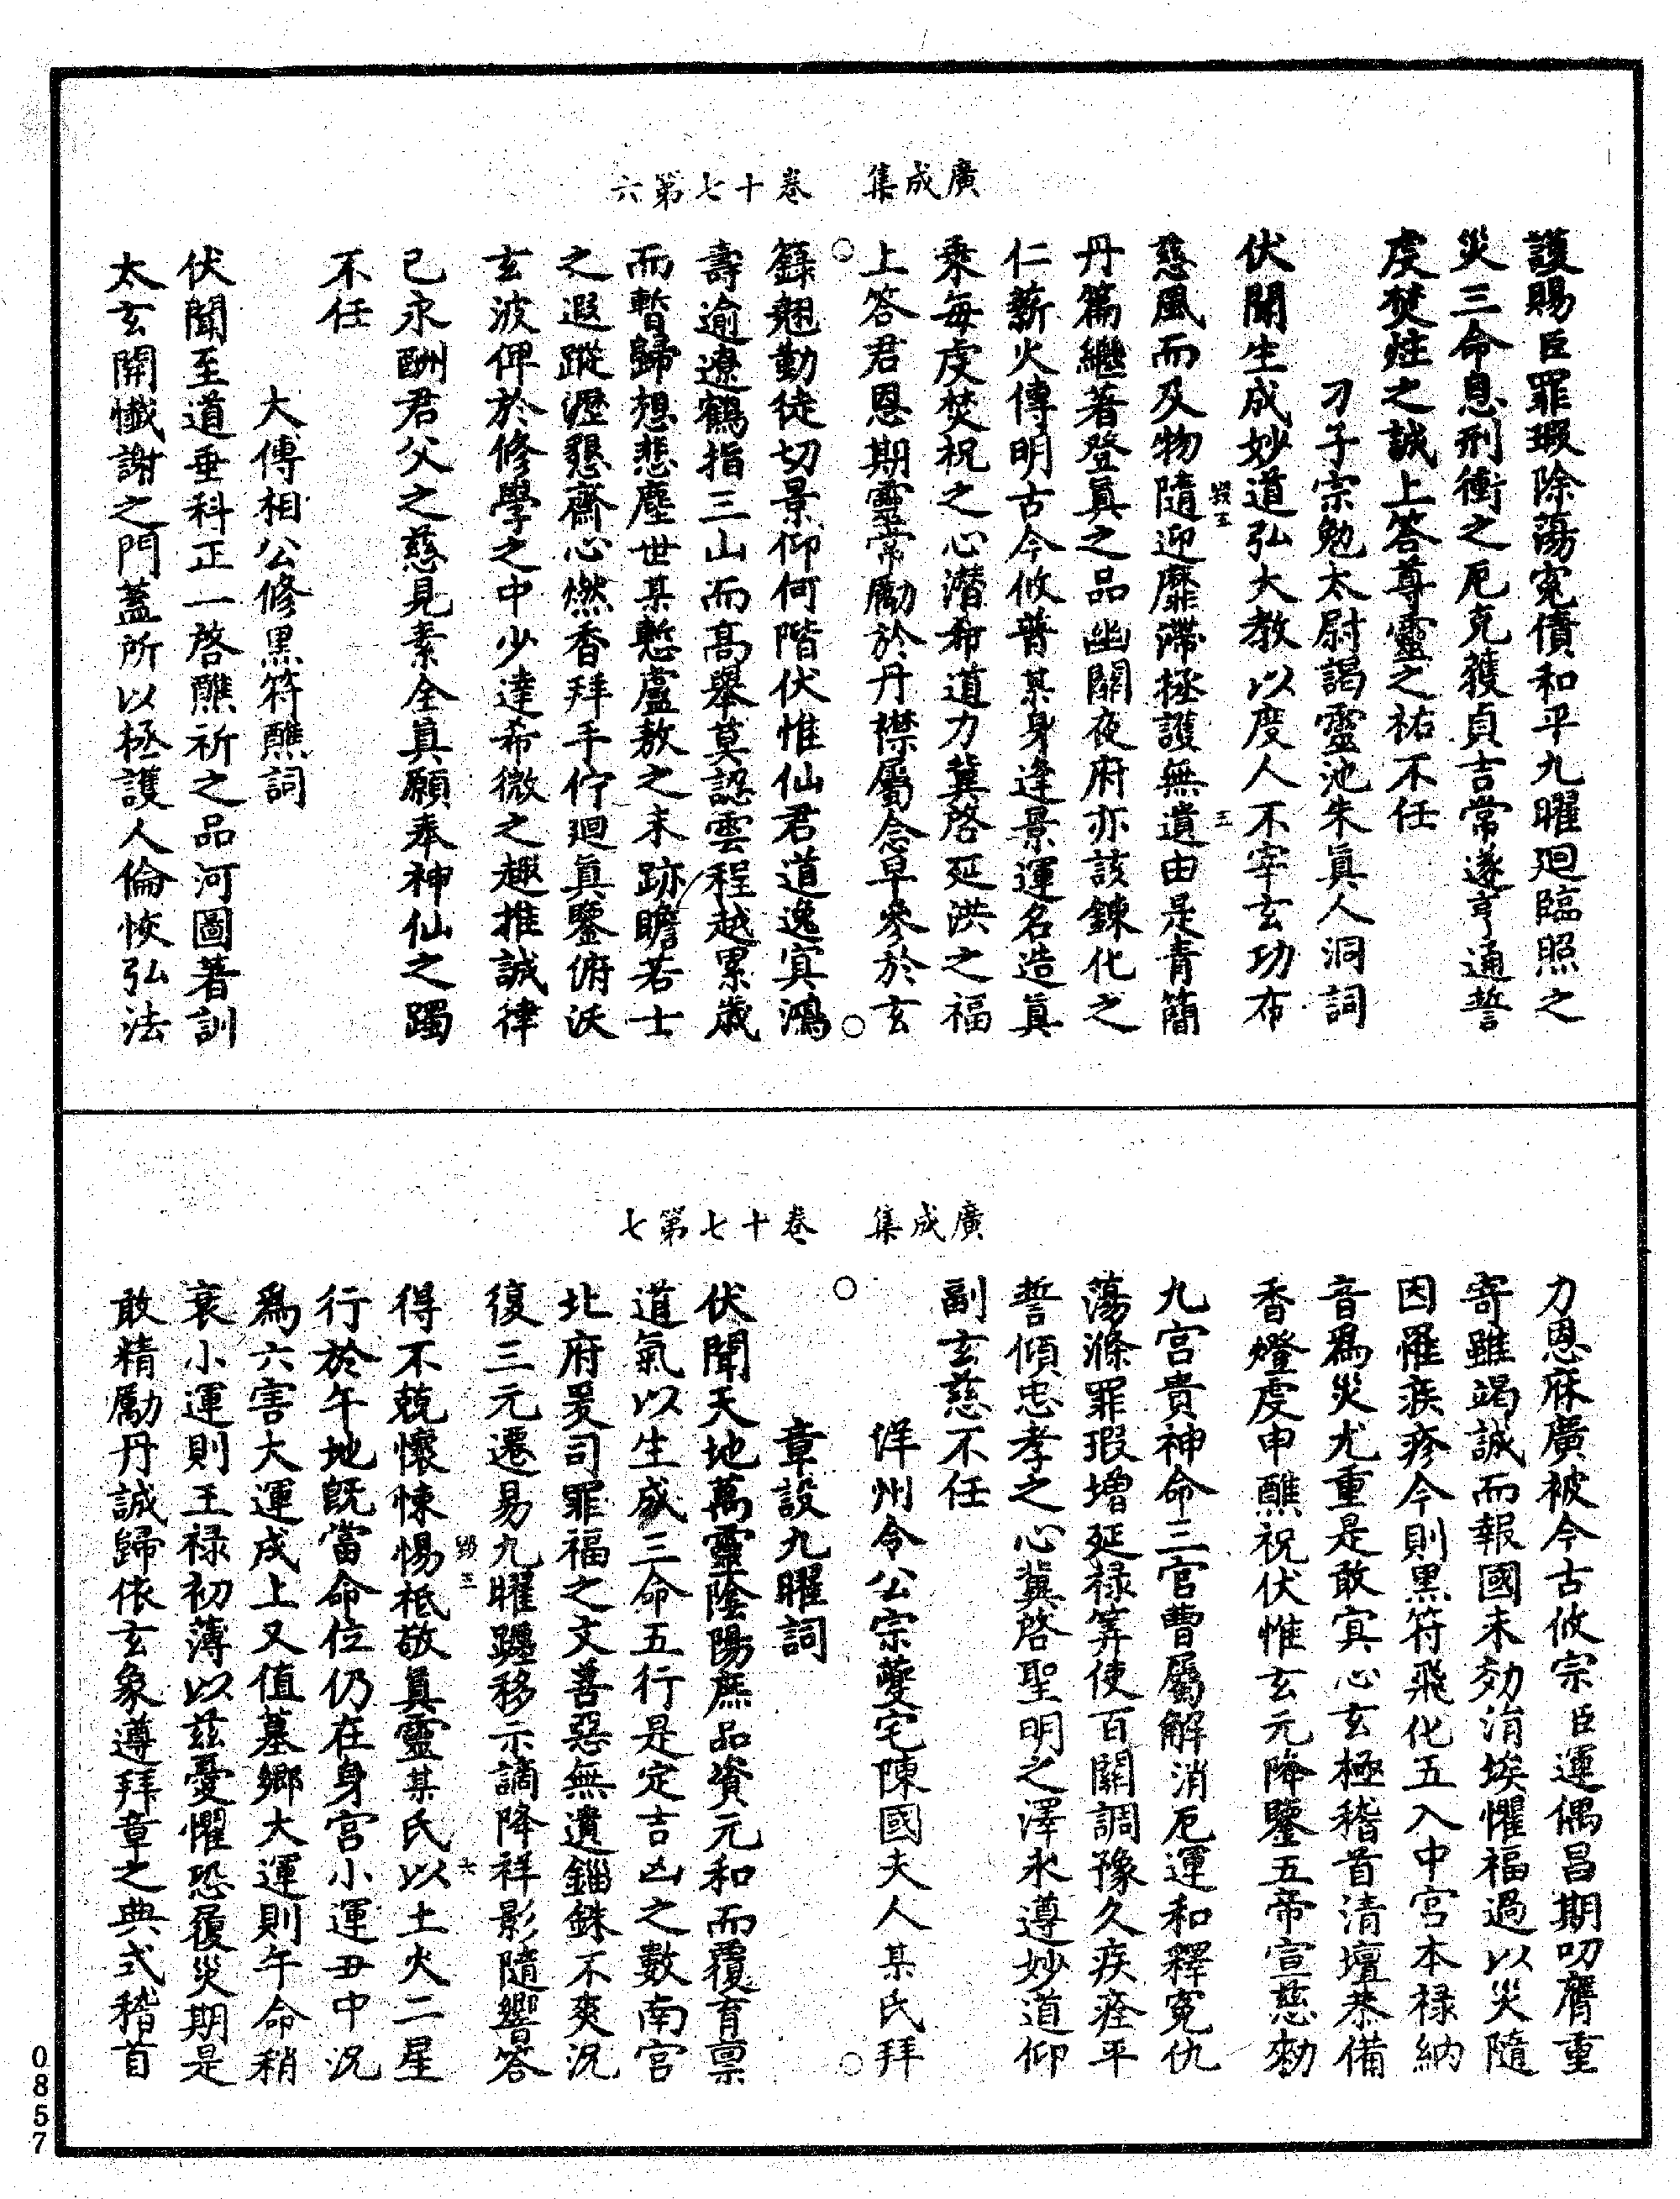 廣成集　卷十七第六
護賜臣罪瑕除蕩寃債和平九曜廻臨照之
災三命息刑衝之厄克獲貞吉常遂亨通誓
虔焚炷之誠上答尊靈之祐不任
刁子宗勉太尉謁靈池朱真人洞詞
伏聞生成妙道弘大教以度人不宰玄功布
慈風而及物隨迎靡滯拯護無遺由是青簡
丹篇繼著登真之品幽關夜府亦該鍊化之
仁薪火傳明古今攸普某身逢景運名造真
乘每虔焚祝之心潛希道力冀啓延洪之福
上答君恩期靈常勵於丹襟屬念早參於玄
籙翹勤徒切景仰何階伏惟仙君道逸寘鴻
壽逾遼鶴指三山而高舉莫認雲程越累歲
而暫歸想悲塵世某慙盧敖之末跡瞻若士
之遐蹤瀝懇齋心燃香拜手佇廻真鑒俯沃
玄波俾於修學之中少達希微之趣推誠律
己永酬君父之慈見素全真願奉神仙之躅
不任
大傅相公修黑符醮詞
伏聞至道垂科正一啓醮祈之品河圖著訓
太玄開懺謝之門蓋所以拯護人倫恢弘法
廣成集　卷十七第七
力恩庥廣被今古攸宗臣運偶昌期叨膺重
寄雖竭誠而報國未効涓埃懼福過以災隨
因罹疾疹今則黑符飛化五入中宮本祿納
音爲災尤重是敢寘心玄極稽首清壇恭備
香燈虔申醮祝伏惟玄元降鑒五帝宣慈勑
九宮貴神命三官曹屬解消厄運和釋寃仇
蕩滌罪瑕增延祿筭使百關調豫久疾痊平
誓傾忠孝之心冀啓聖明之澤永遵妙道仰
副玄慈不任
洋州令公宗夔宅陳國夫人某氏拜
章設九曜詞
伏聞天地萬靈陰陽庶品資元和而覆育禀
道氣以生成三命五行是定吉凶之數南宮
北府爰司罪福之文善惡無遺錙銖不爽況
復三元遷易九曜躔移示謫降祥影隨響答
得不兢懷悚惕祗敬真靈某氏以土火二星
行於午地既當命位仍在身宮小運丑中況
爲六害大運戌上又值墓鄉大運則午命稍
衰小運則王祿初薄以兹憂懼恐履災期是
敢精勵丹誠歸依玄象遵拜章之典式稽首
0857